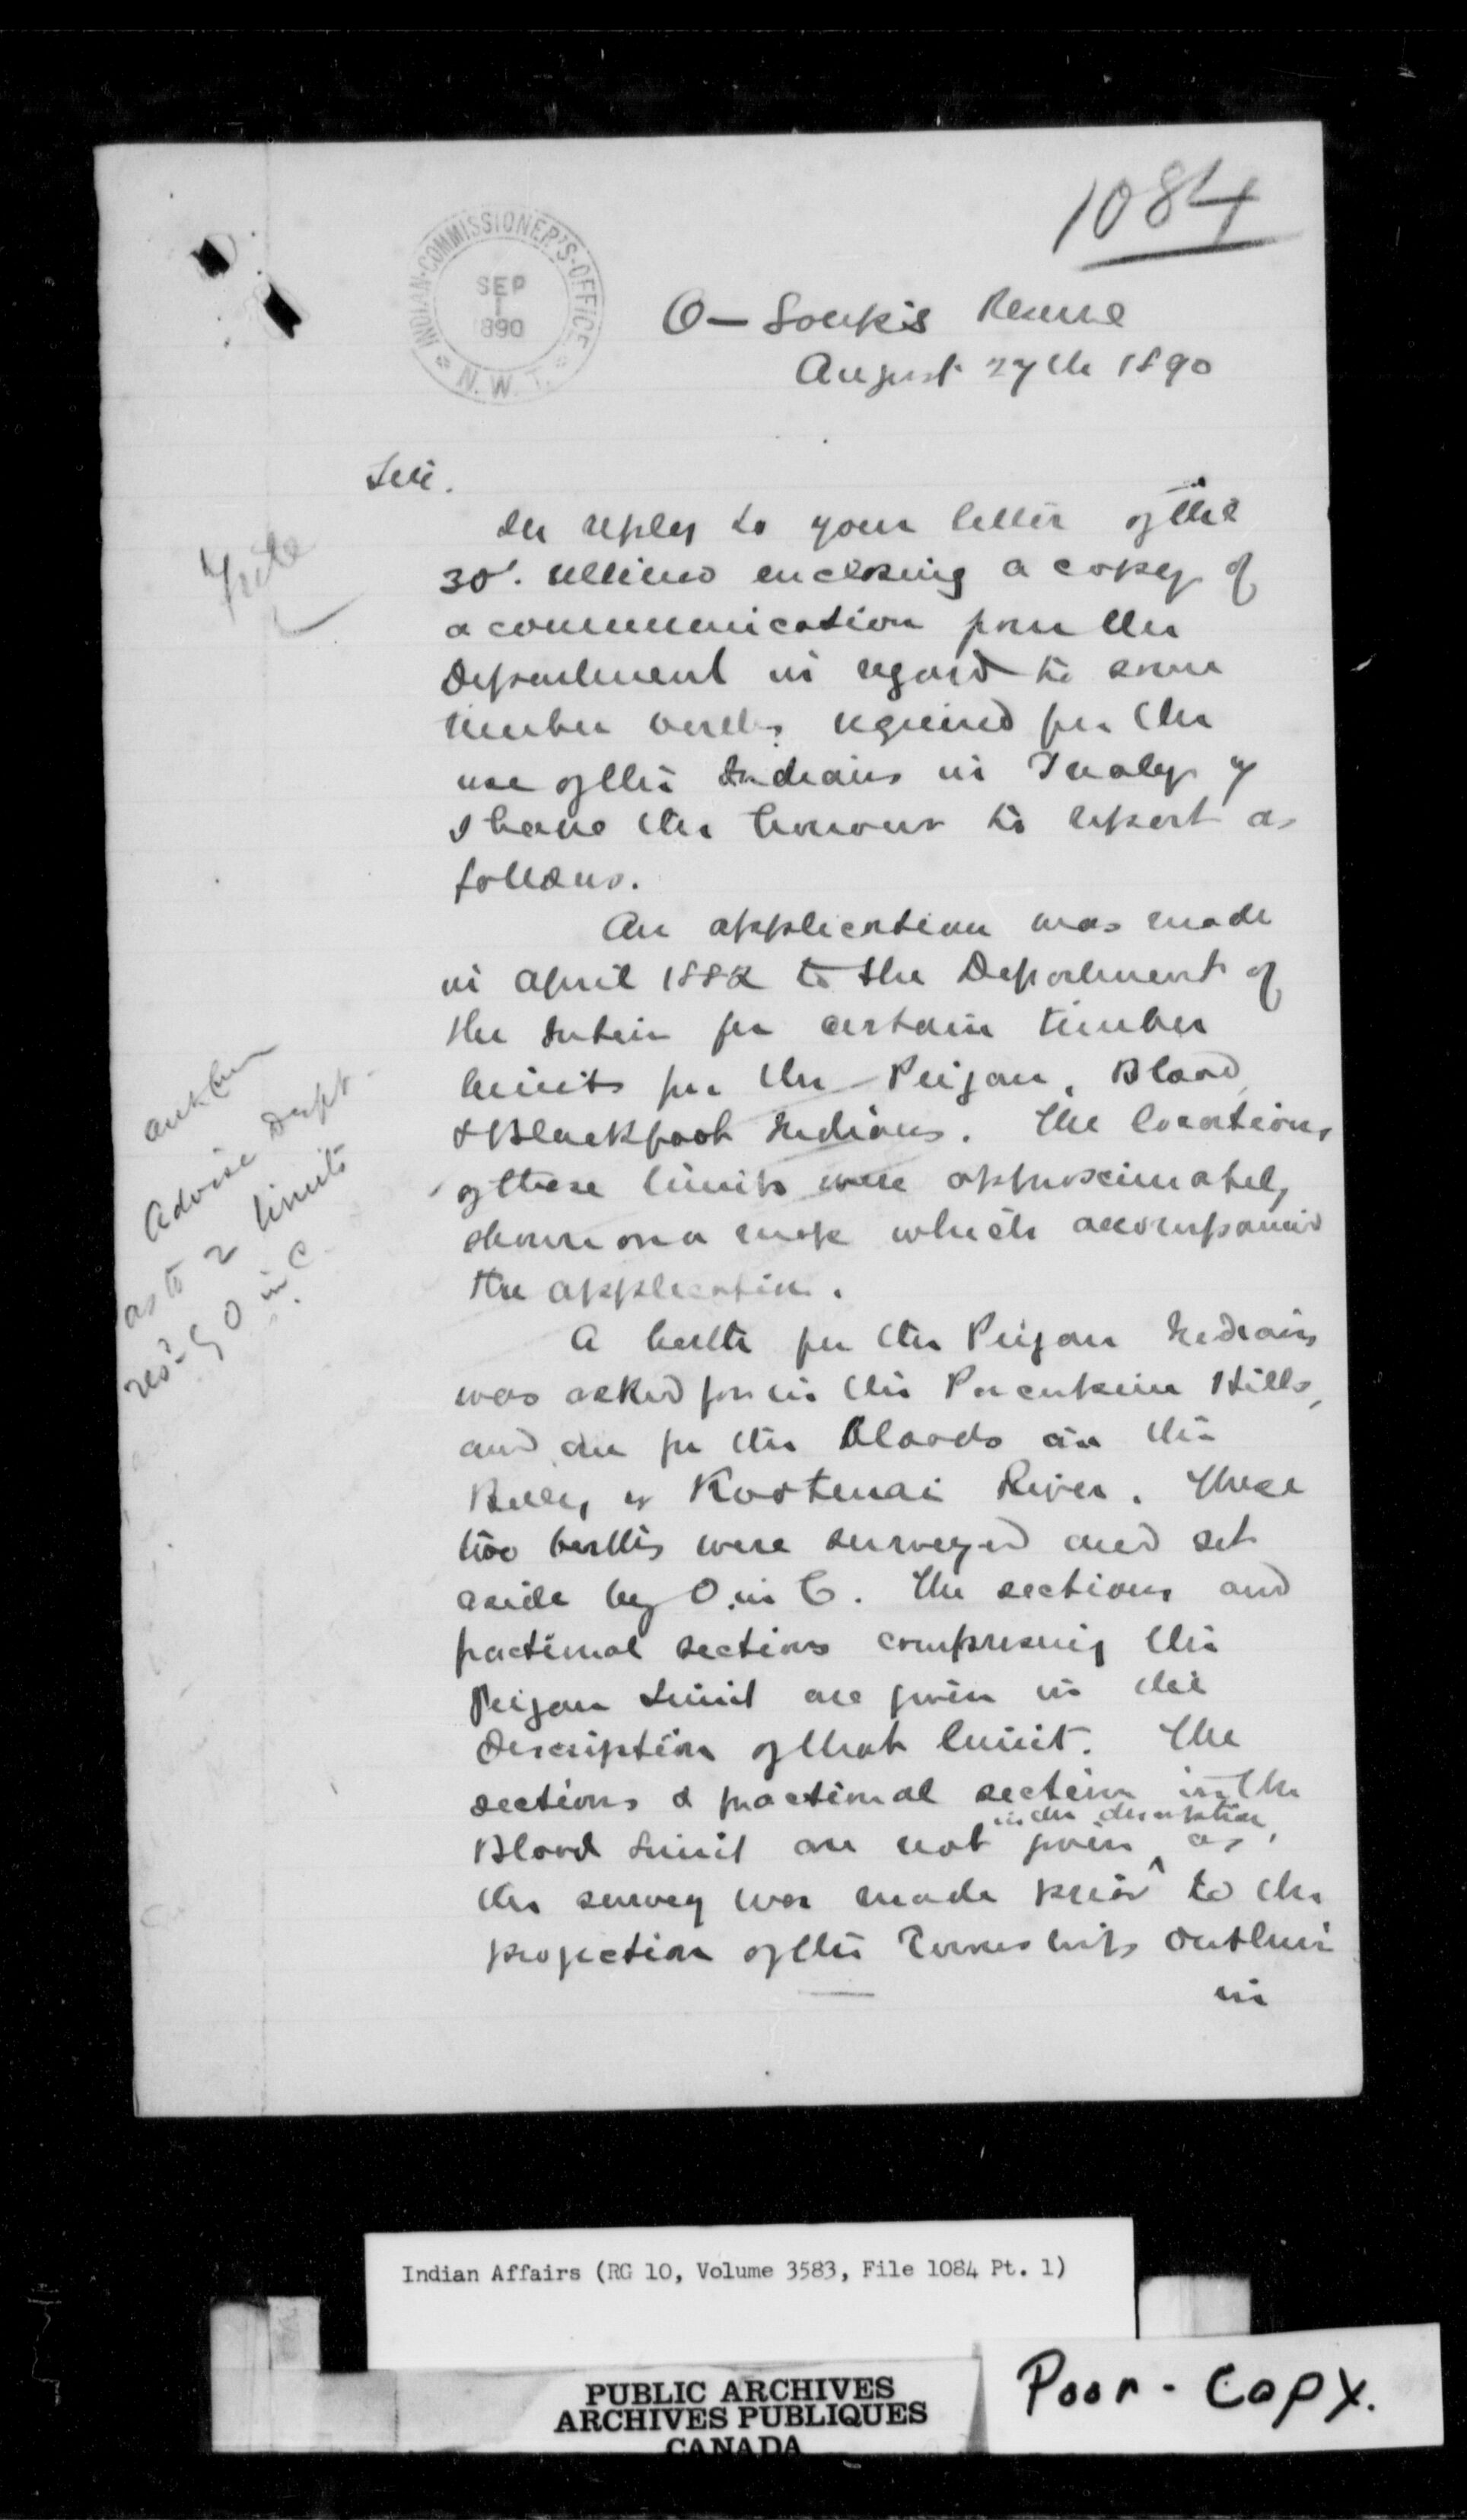 1084
INDIAN-COMMISSIONER'S-OFFICE
SEP
1
1890
N. W. T.
O-Soup's Reserve
August 27th 1890
Sir.
In reply to your letter of the
30th. ultimo enclosing a copy of
a communication from the
Department in regard to some
timber berths required for the
use of the Indians in Treaty 7
I have the honour to report as
follows.
An application was made
in April 1882 to the Department of
the Interior for certain timber
limits for the Peigan, Blood,
& Blackfoot Indians. The locations
of these limits were approximately
shown on a map which accompanied
the application.
A berth for the Peigan Indians
was asked for in the Porcupine Hills,
and one for the Bloods on the
Belly or Kootenai River. These
two berths were surveyed and set
aside by O. in C. The sections and
fractional sections comprising the
Peigan Limit are given in the
description of that limit. The
sections & fractional section in the
Blood Limit are not given in the description, as
the survey was made prior to the
projection of the Townships outline
in
Advise Dept.
as to 2 limits
resd by O in C.
Indian Affairs (RG 10, Volume 3583, File 1084 Pt. 1)
PUBLIC ARCHIVES
ARCHIVES PUBLIQUES
CANADA
Poor - Copy.